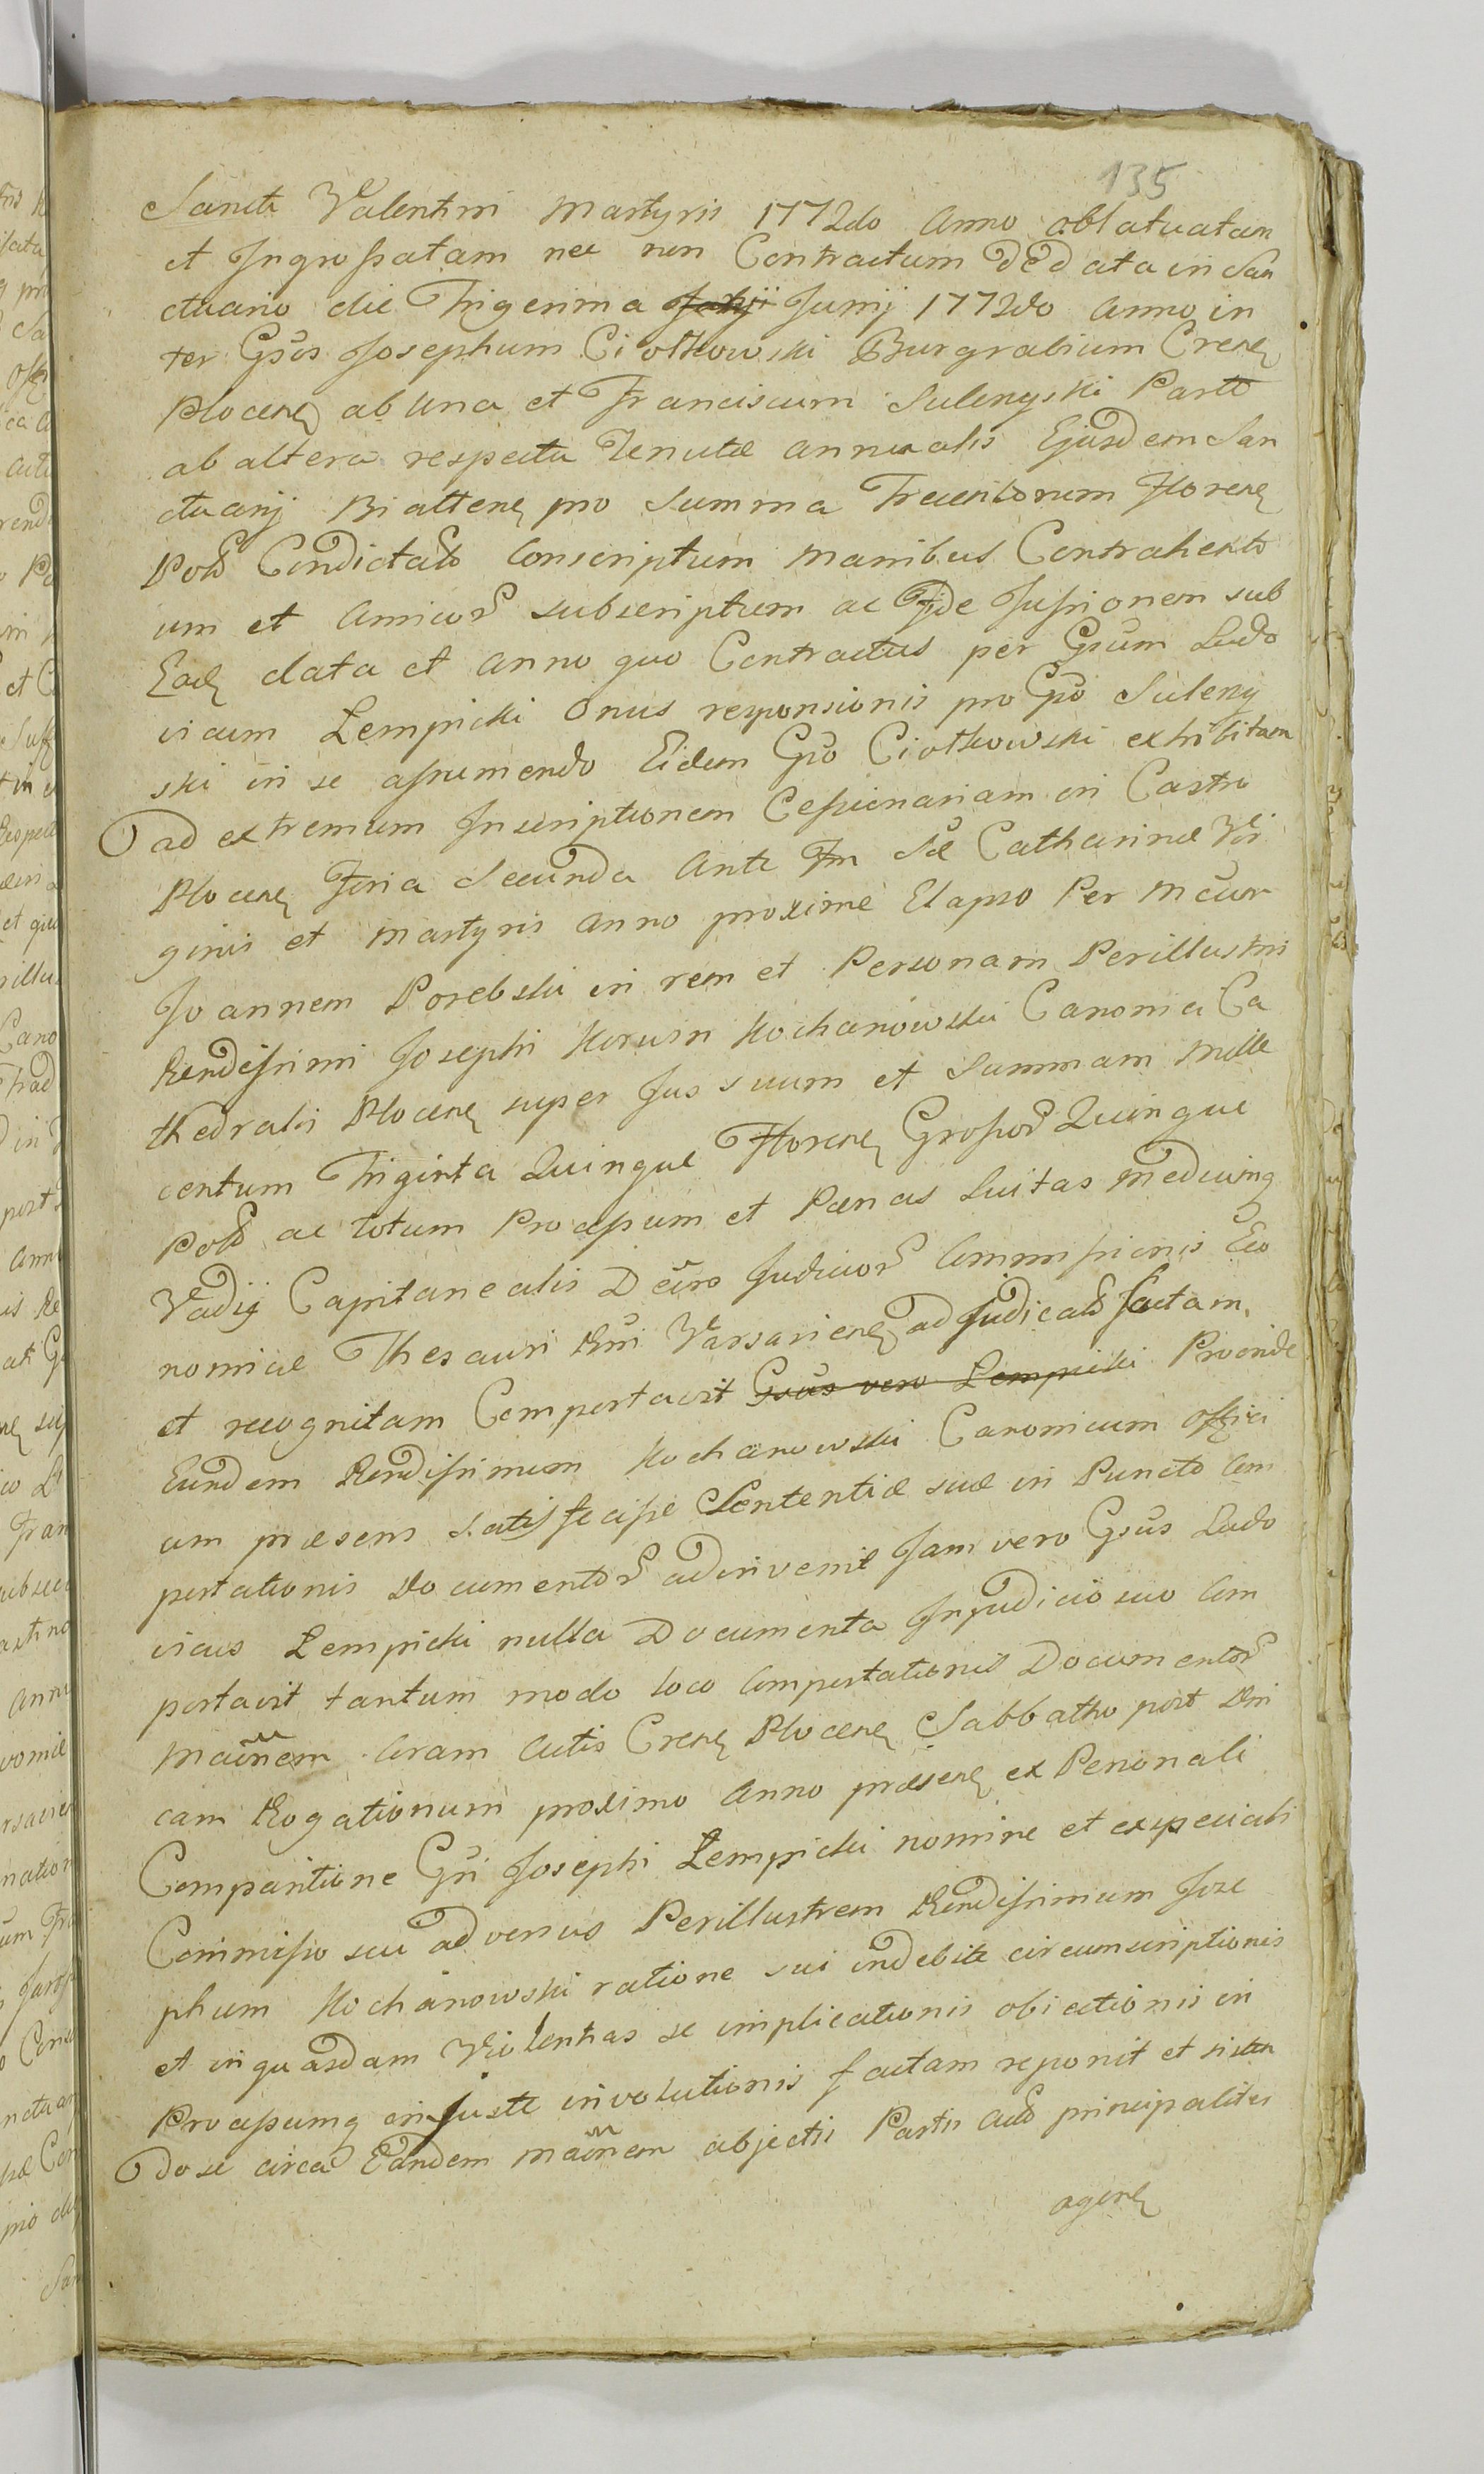 135
Sancti Valentini Martyris 1772do Anno oblatuatam
et Ingrossatam nec non Contractum de data in San
ctuario die Trigesima Julij Junij 1772do Anno in
ter Gsos Josephum Ciotkowski Burgrabium Crens
Plocens ab una et Franciscum Sulenyski Parte
ab altera respectu Tenutæ annualis Ejusdem San
ctuarij Biattens pro Summa Trecentorum Florens
Pols Condictals Conscriptum Manibus Contrahenti
um et Amicor subscriptum ac Fide Jussionem sub
Eads data et anno quo Contractus per Gsum Ludo
vicum Lempicki Onus responsionis pro Gso Suleny
ski in se assumendo Eidem Gso Ciotkowski exhibitam
ad extremum Inscriptionem Cessionariam in Castro
Plocens Feria Secunda Ante Fm Sæ Catharinæ Vir
ginis et Martyris Anno proxime Elapso Per Mcum
Joannem Porebski in rem et Personam Perillustris
Rendissimi Josephi Korwin Kochanowski Canonici Ca
thedralis Plocens super Jus suum et Summam Mille
centum Triginta Quinque Florens Grossor Quinque
Pols ac totum Processum et Pænas Luitas Mediumq
Vadij Capitanealis Decro Judicior Commissionis Eco
nomicæ Thesauri Rni Varsaviens adjudicals factam
et recognitam Comportavit Gsus vero Lempicki Proinde
Eundem Rendissimum Kochanowski Canonicum offici
um præsens satisfecisse Sententiæ suæ in Puncto Com
portationis Documentor adinvenit Jam vero Gsus Ludo
vicus Lempicki nulla Documenta In Judicio suo Com
portavit tantum modo loco Comportationis Documentor
Mainem Coram Actis Crens Plocens Sabbatho post Dni
cam Rogationum proximo Anno præsens ex Personali
Comparitione Gsi Josephi Lempicki nomine et ex speciali
Commisso seu adversus Perillustrem Rendissimum Jose
phum Kochanowski ratione sui indebite circumscriptionis
et in quasdam Violentias se implicationis obiectionis in
Processumq injuste involutionis factam reponit et sisten
do se circa Eandem Mainem abjectis Partis Acts principaliter
agens